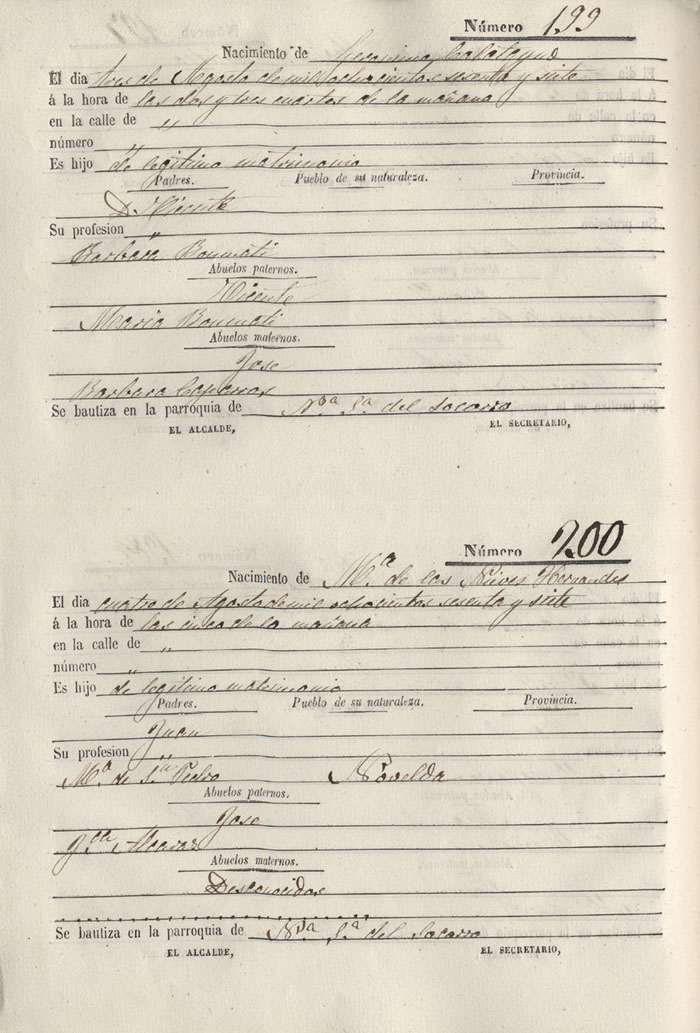 Número 199
Nacimiento de Geronimo Calatayud
El dia tres de Agosto de mil ochocientos sesenta y siete
á la hora de las dos y tres cuartos de la mañana
en la calle de "
número
Es hijo de legitimo matrimonio
Padres. Pueblo de su naturaleza. Provincia.
D. Vicente
Su profesion "
Barbara Bonmati
Abuelos paternos.
Vicente
Maria Bonmati
Abuelos maternos.
Jose
Barbara
Se bautiza en la parroquia de Nra Sa del Socorro
EL ALCALDE, EL SECRETARIO,
Número 200
Nacimiento de Ma de las Nieves Hernandes
El dia cuatro de Agosto de mil ochocientos sesenta y siete
á la hora de las cinco de la mañana
en la calle de "
número "
Es hijo de legitimo matrimonio
Padres. Pueblo de su naturaleza. Provincia.
Juan
Su profesion "
Ma de Sn Pedro Novelda
Abuelos paternos.
Jose
Alcaraz
Abuelos maternos.
Desconocidos
Se bautiza en la parroquia de Nra Sa del Socorro
EL ALCALDE, EL SECRETARIO,